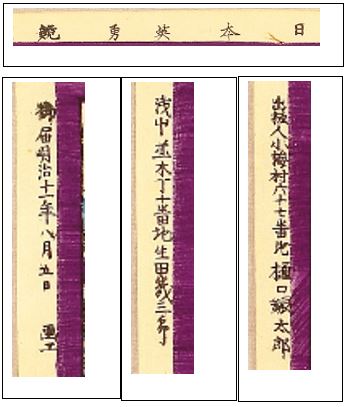 日本英勇鏡
御届明治十一年八月五日 画工
浅屮並木丁十番地生田幾三郎
出板人小梅村六十七番地 樋口銀太郎